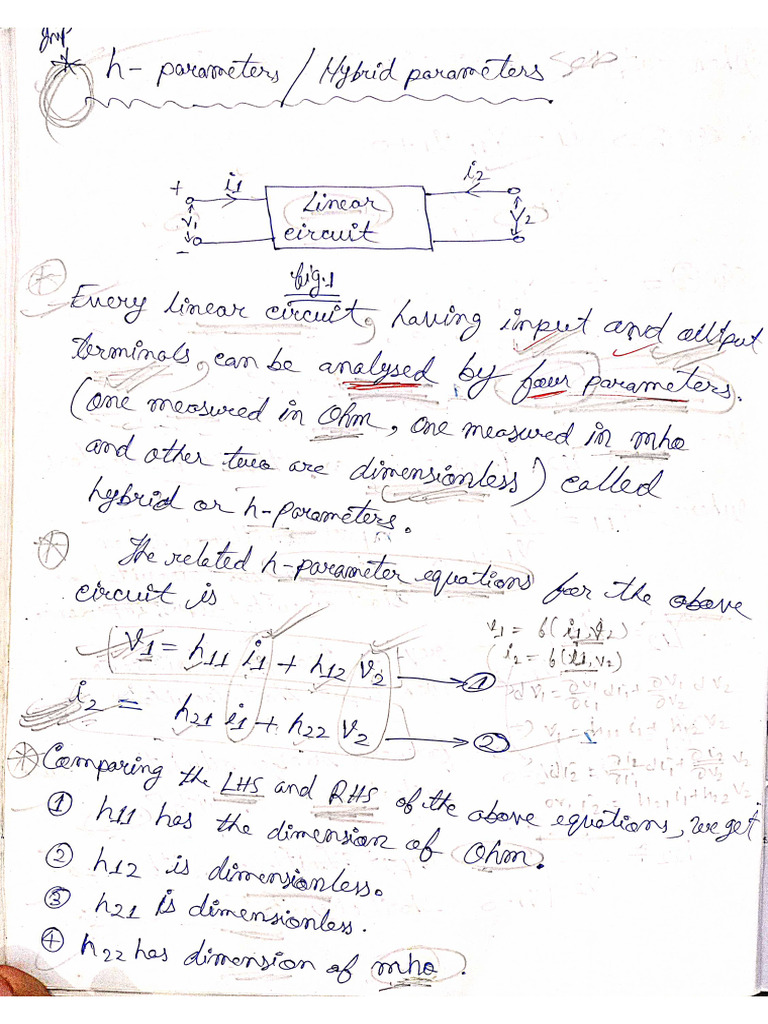 Imp
h- parameters / Hybrid parameters
+ i1 i2
V1 Linear V2
circuit
-
fig.1
Every linear circuit, having input and output
terminals, can be analysed by four parameters.
(one measured in Ohm, one measured in mho
and other two are dimensionless) called
hybrid or h-parameters.
The related h-parameter equations for the above
circuit is
v1 = f(i1,v2)
(i2 = f(i1,v2)
V1 = h11 i1 + h12 V2 → ①
i2 = h21 i1 + h22 V2 → ②
dv1 = ∂v1/∂i1 di1 + ∂v1/∂v2 dv2
Comparing the LHS and RHS of the above equations, we get
① h11 has the dimension of Ohm.
② h12 is dimensionless.
③ h21 is dimensionless.
④ h22 has dimension of mho.